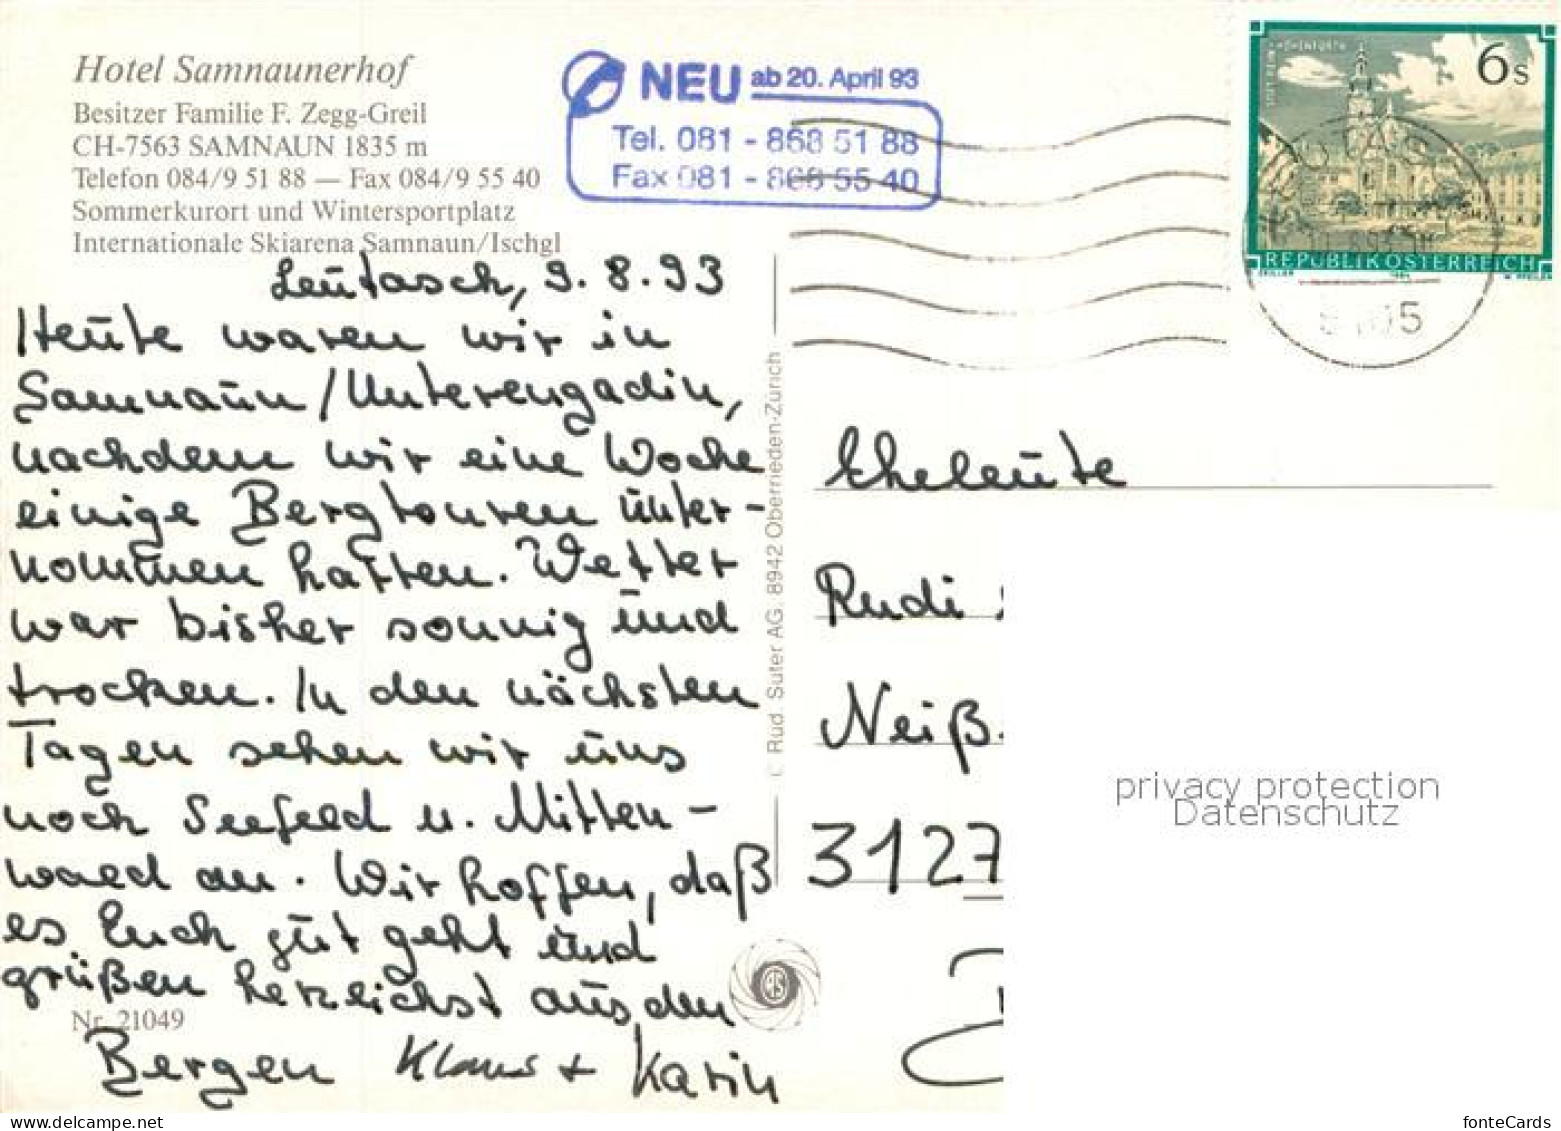 Hotel Samnaunerhof
Besitzer Familie F. Zegg-Greil
CH-7563 SAMNAUN 1835 m
Telefon 084/9 51 88 — Fax 084/9 55 40
Sommerkurort und Wintersportplatz
Internationale Skiarena Samnaun/Ischgl
NEU ab 20. April 93
Tel. 081 - 868 51 88
Fax 081 - 868 55 40
6s
REPUBLIK ÖSTERREICH
Leutasch, 9.8.93
Heute waren wir in
Samnaun/Unterengadin,
nachdem wir eine Woche
einige Bergtouren unter-
nommen hatten. Wetter
war bisher sonnig und
trocken. In den nächsten
Tagen sehen wir uns
noch Seefeld u. Mitten-
wald an. Wir hoffen, daß
es Euch gut geht und
grüßen herzlichst aus den
Bergen Klaus + Karin
Nr. 21049
© Rud. Suter AG. 8942 Oberrieden-Zürich
Eheleute
Rudi
Neiß
3127
privacy protection
Datenschutz
www.delcampe.net
fonteCards